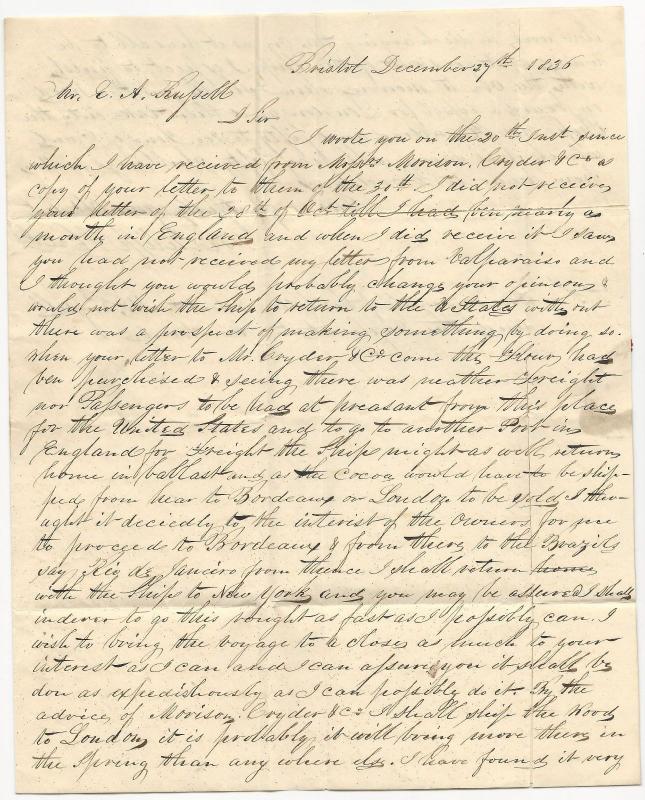 Bristol December 27th 1836
Mr. E. A. Russell
D Sir
I wrote you on the 20th Inst since
which I have received from Messrs Morison, Cryder & Co a
copy of your letter to them of the 30th. I did not receive
your letter of the 28th of Oct till I had ben nearly a
month in England and when I did receive it I saw
you had not received my letter from Valparaiso and
I thought you would probably change your opineon &
would not wish the ship to return to the States without
there was a prospect of making something by doing so.
when your letter to Mr. Cryder & Co come the Flour had
ben purchised & seeing there was neather Freight
nor Passengers to be had at preasant from this place
for the United States and to go to another Port in
England for Freight the Ship might as well return
home in ballast and as the Cocoa would have to be ship-
ped from hear to Bordeaux or London to be sold I tho-
ught it deciedly to the interist of the Owners for me
to proceede to Bordeaux & from there to the Brazils
say Rio de Janeiro from thence I shall return home
with the Ship to New York and you may be assured I shall
inderer to go this vought as fast as I possibly can. I
wish to bring the voyage to a close as much to your
interest as I can and I can assure you it shall be
don as expedishously as I can possibly do it. By the
advice of Morison, Cryder & Co I shall ship the Wood
to London, it is probably it well bring more there in
the Spring than any where els. I have found it very